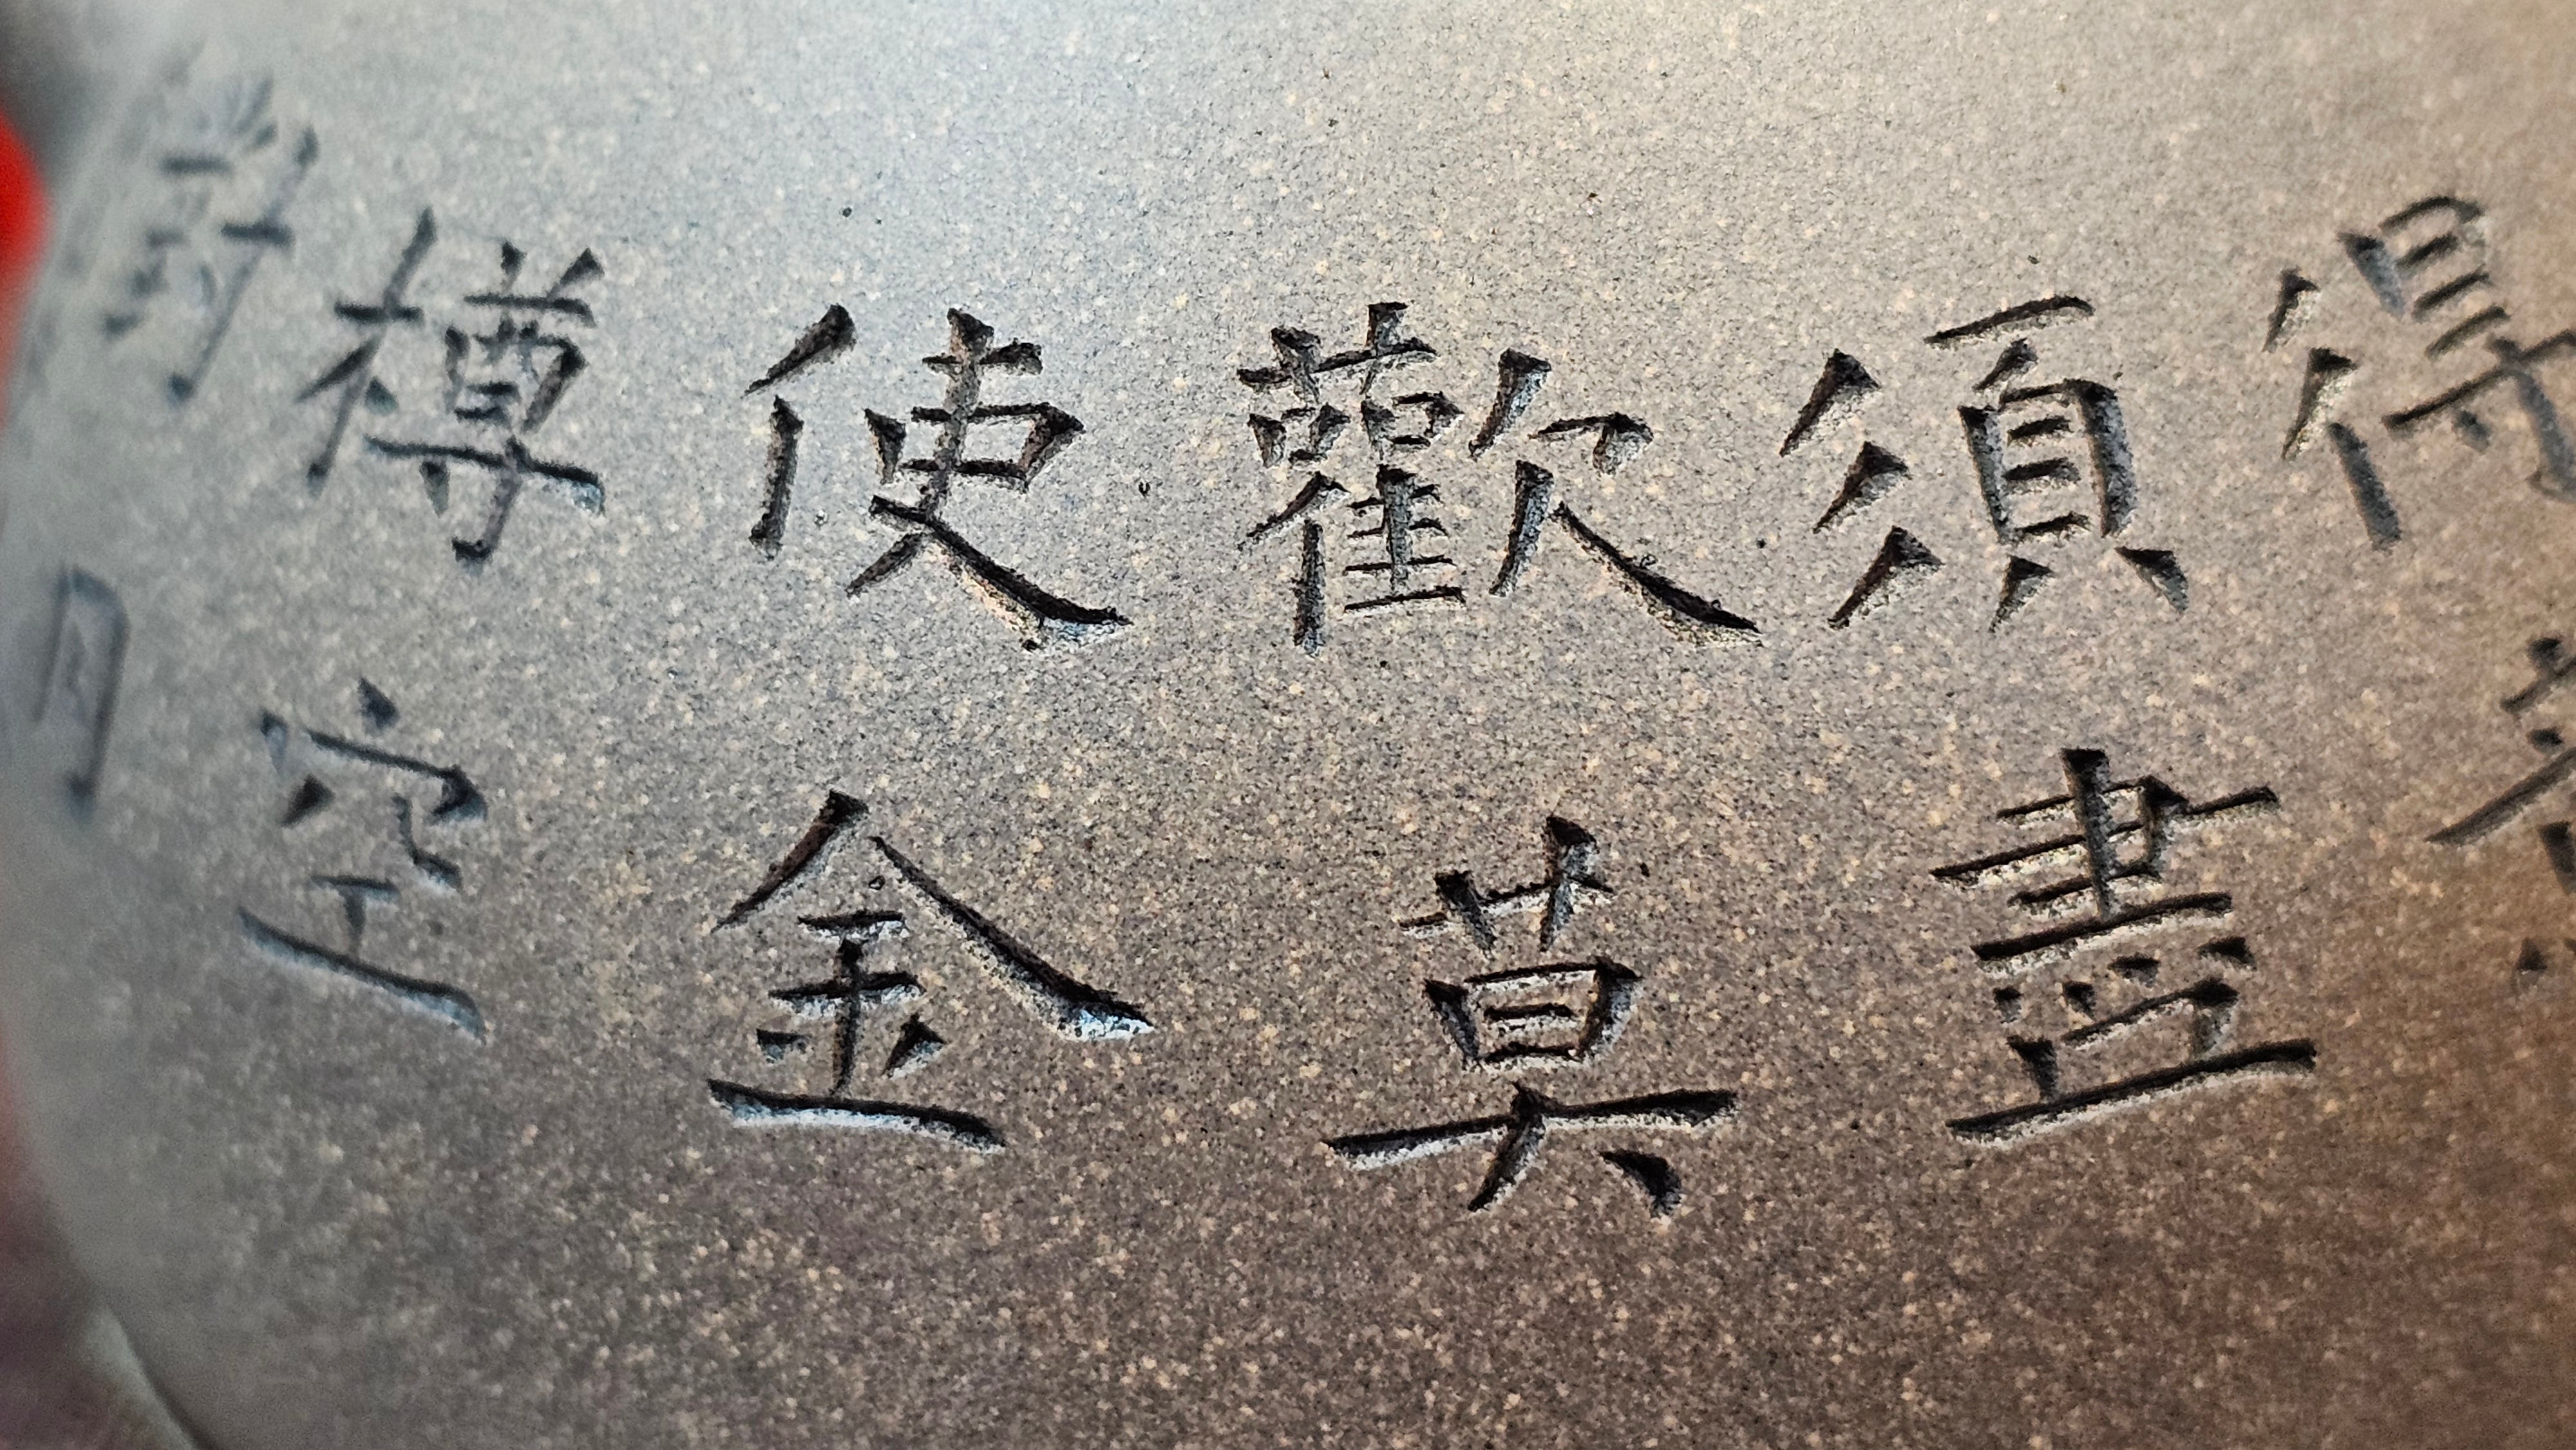 得意
須盡
歡莫
使金
樽空
對月